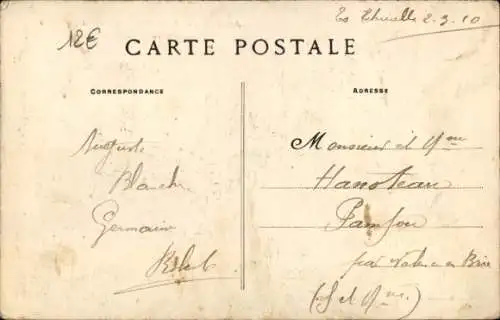 2-3-10
12€
CARTE POSTALE
CORRESPONDANCE
ADRESSE
Auguste
Blanche
Germain
Monsieur et Mme
Hanoteau
Pamfou
par Valence en Brie
(S et Me)